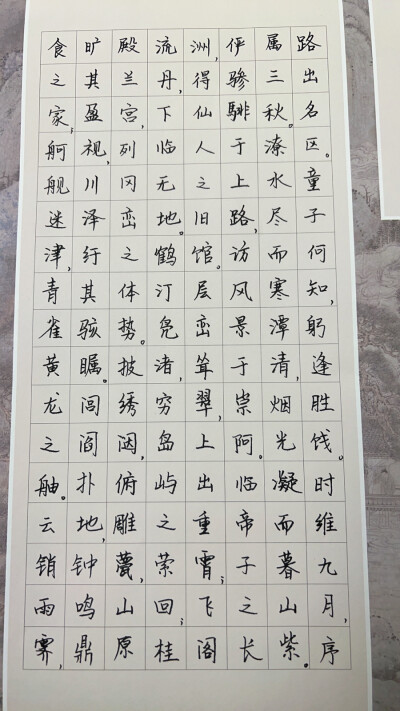 路出名区。童子何知,躬逢胜饯。时维九月,序
属三秋。潦水尽而寒潭清,烟光凝而暮山紫。
俨骖騑于上路,访风景于崇阿。临帝子之长
洲,得仙人之旧馆。层峦耸翠,上出重霄;飞阁
流丹,下临无地。鹤汀凫渚,穷岛屿之萦回;桂
殿兰宫,列冈峦之体势。披绣闼,俯雕甍,山原
旷其盈视,川泽纡其骇瞩。闾阎扑地,钟鸣鼎
食之家;舸舰迷津,青雀黄龙之舳。云销雨霁,